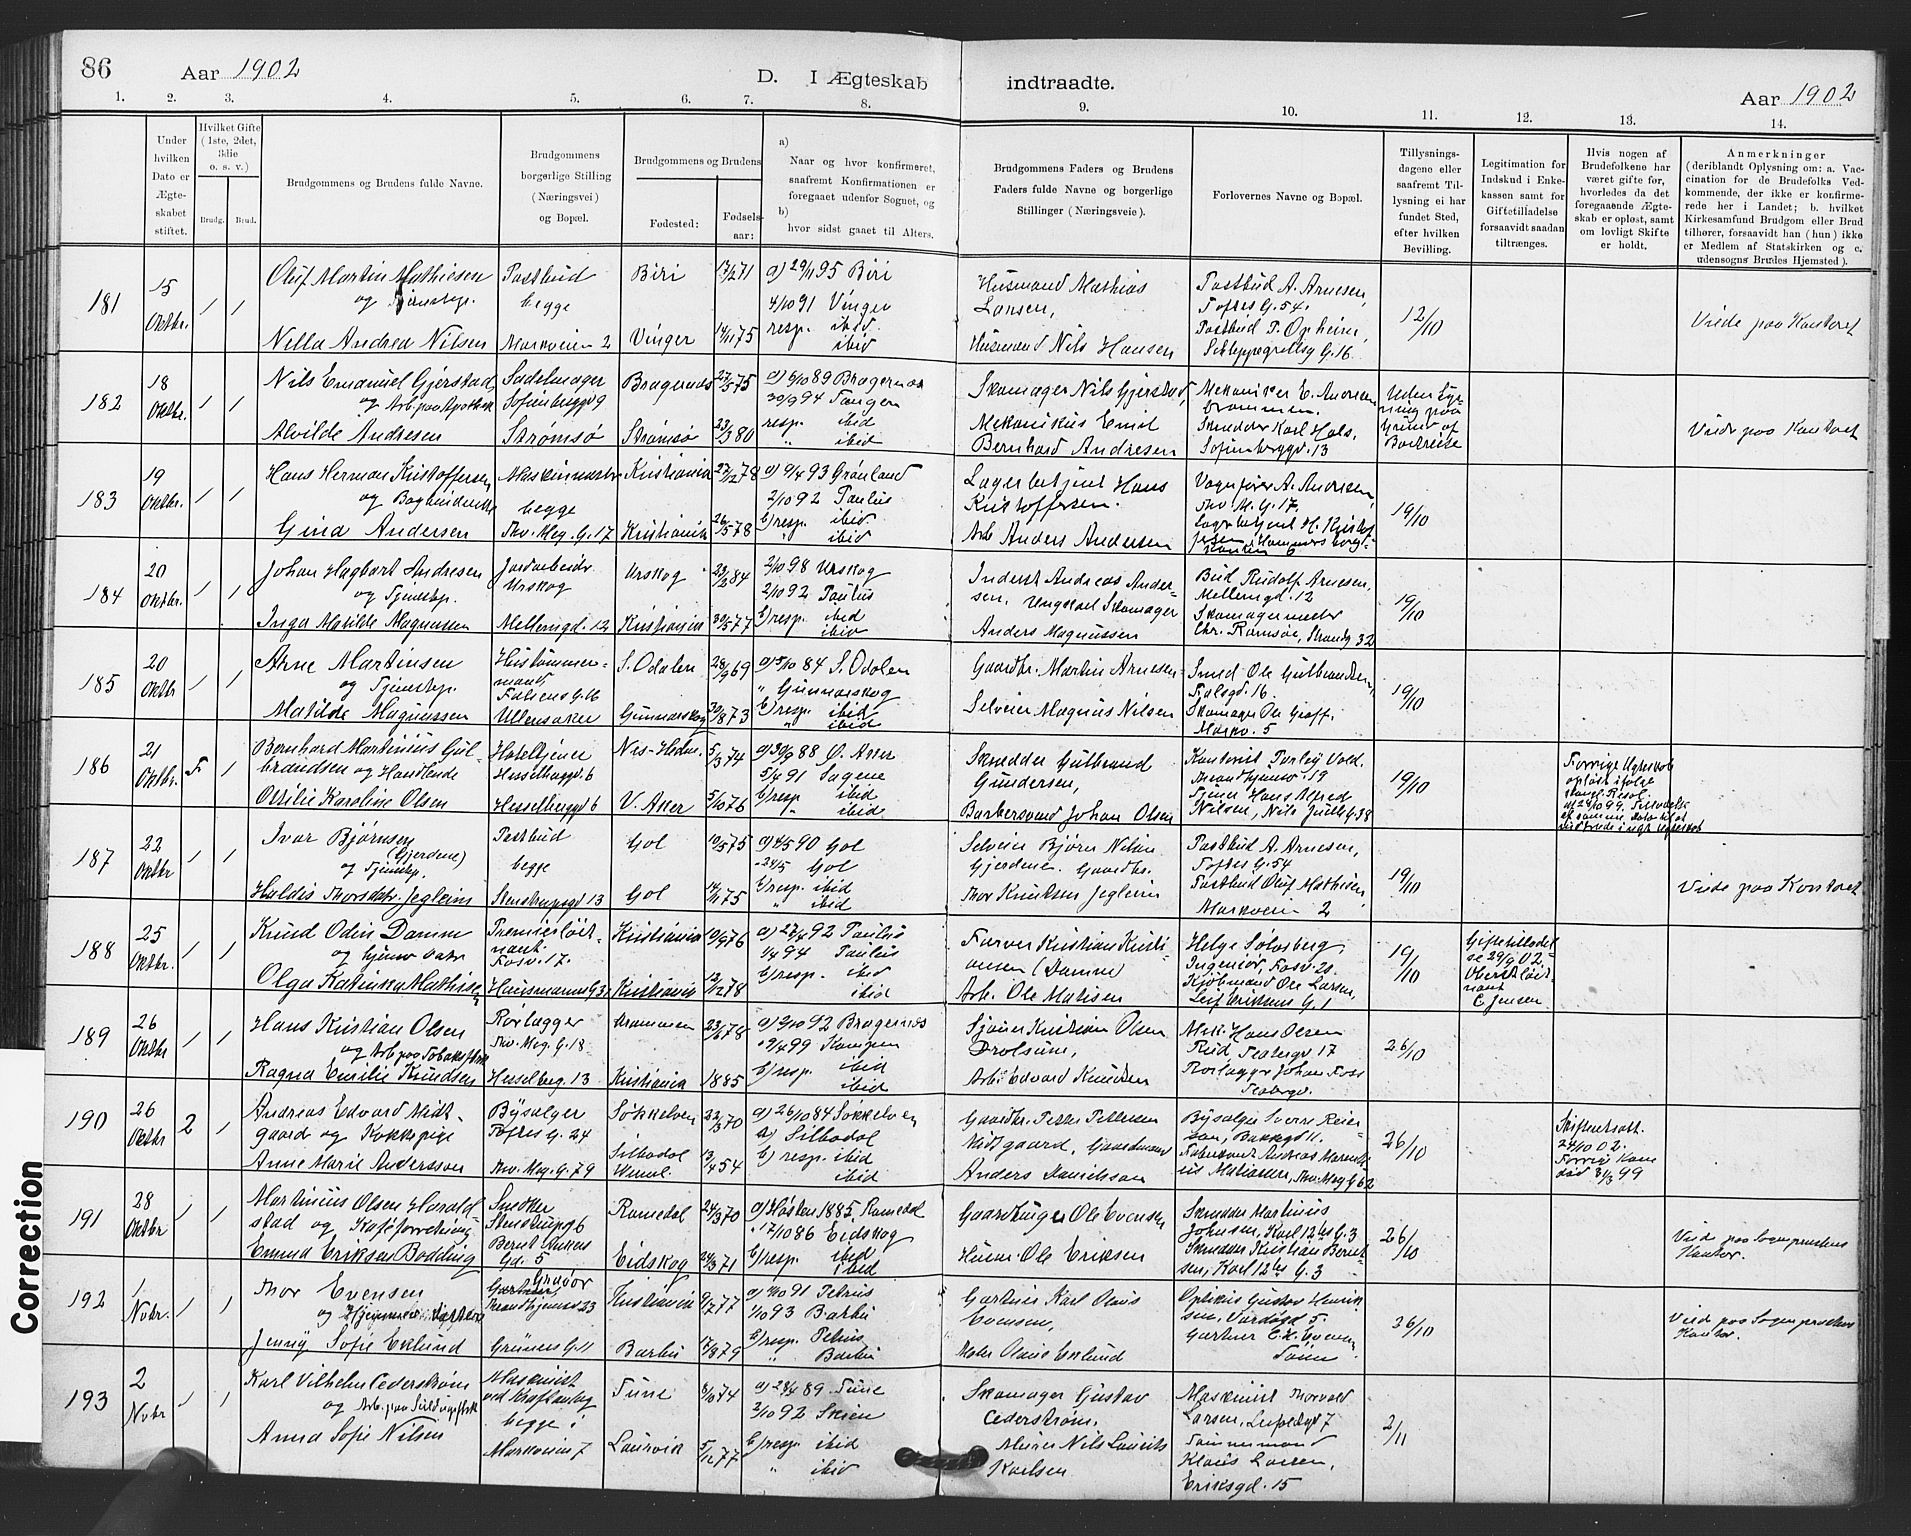 86 Aar 1902 D. I Ægteskab indtraadte. Aar 1902
1. 2. 3. 4. 5. 6. 7. 8. 9. 10. 11. 12. 13. 14.
Under hvilken Dato er Ægteskabet stiftet.
Hvilket Gifte (1ste, 2det, 3die o. s. v.)
Brudg. Brud.
Brudgommens og Brudens fulde Navne.
Brudgommens borgerlige Stilling (Næringsvei) og Bopæl.
Brudgommens og Brudens
Fødested: Fødselsaar:
a) Naar og hvor konfirmeret, saafremt Konfirmationen er foregaaet udenfor Sognet, og
b) hvor sidst gaaet til Alters.
Brudgommens Faders og Brudens Faders fulde Navne og borgerlige Stillinger (Næringsveie).
Forlovernes Navne og Bopæl.
Tillysningsdagene eller saafremt Tillysning ei har fundet Sted, efter hvilken Bevilling.
Legitimation for Indskud i Enkekassen samt for Giftetilladelse forsaavidt saadan tiltrænges.
Hvis nogen af Brudefolkene har været gifte før, hvorledes da det foregaaende Ægteskab er opløst, samt om lovligt Skifte er holdt.
Anmerkninger (deriblandt Oplysning om: a. Vaccination for de Brudefolks Vedkommende, der ikke er konfirmerede her i Landet; b. hvilket Kirkesamfund Brudgom eller Brud tilhører, forsaavidt han (hun) ikke er Medlem af Statskirken og c. udensogns Brudes Hjemsted).
181 15 Oktbr. 1 1
Oluf Martin Mathiesen Postbud Biri 17/2 71 a) 29/11 95 Biri
og Tjenestep. begge 4/10 91 Vinger
Nilla Andrea Nilsen Markveien 2 Vinger 14/11 75 resp. ibid ibid
Husmand Mathias Larsen,
Husmand Nils Hansen
Postbud A. Arnesen, Toftes G. 54.
Postbud P. Opheim, Schleppegrellsg G. 16
12/10
Viede paa Kontoret
182 18 Oktbr. 1 1
Nils Emanuel Gjerstad Sadelmager Bragernæs 27/5 75 a) 6/10 89 Bragernæs
og Arb. paa Apothek Sofienberggd 9 30/9 94 Tangen
Alvilde Andresen Strømsø Strømsø 23/3 80 resp. ibid " ibid
Skomager Nils Gjerstad,
Mekanikus Emil Bernhard Andresen
Mekaniker E. Andresen Drammen.
Skredder Karl Hals, Sofienberggd. 13
Uden Lysning paa Grund af Bortreise
Viede paa Kontoret
183 19 Oktbr. 1 1
Hans Herman Kristoffersen Kristiania 27/12 78 a) 9/4 93 Grønland
og begge 2/10 92 Paulus
Gina Andersen Thv. Meg. G. 17 Kristiania 26/5 78 b) resp. ibid. " ibid
Lagerbetjent Hans Kristoffersen.
Arb Anders Andersen
Vognfører A. Andersen, Thv. M. G. 17,
Lagerbetjent H. Kristoffersen, Hammersborg-
19/10
184 20 Oktbr. 1 1
Johan Hagbart Andresen Jordarbeidr. Urskog Urskog 84 2/10 98 Urskog
og Tjenestep. 2/10 92 Paulus
Inga Matilde Magnussen Mellemgd. 12 Kristiania 30/5 77 b) resp. ibid ibid
Inderst Andreas Andersen, Ungkarl Skomager
Anders Magnussen
Bud Rudolf Arnesen, Mellemgd. 12
Skomagermester Chr. Ramsøe, Strandg 32
19/10
185 20 Oktbr 1 1
Arne Martinsen Hustømmermand Falsens G. 16 S. Odalen 28/9 69 a) 5/10 84 S. Odalen
og Tjenestep. " Gunnarskog
Matilde Magnussen Ullensaker Gunnarskog 20/8 73 b) resp. ibid " ibid
Gaardbr. Martin Arnesen
Selveier Magnus Nilsen
Smed Ole Gulbrandsen, Falsgd. 16.
Skomager Ole Graff. Markv. 5
19/10
186 21 Oktbr. F 1
Bernhard Martinius Gulbrandsen og Handlende Hoteltjener Hesselbggd. 6 Nes-Hedm. 5/3 74 a) 30/9 88 Ø. Aker
5/4 91 Sagene
Otilie Karoline Olsen Hesselberggd 6 V. Aker 5/10 76 b) resp ibid " ibid
Skredder Gulbrand Gundersen,
Barbersvend Johan Olsen
Throndhjemsv. 19
Tjener Hans Alfred Nilsen, Nils Juels G. 38
19/10
Forrige Ægteskab opløst ifølge kongl. Resol. af 24/10 99.
187 22 Oktbr 1 1
Ivar Bjørnsen (Gjerdene) Postbud Gol 10/5 75 a) 4/5 90 Gol
og Tjenestep. begge - 24/5 Gol
Haldis Thorsdatr. Jeglein Stenstrupsgd 13 Gol 14/11 75 b) resp. ibid " ibid
Selveier Bjørn Nilsen Gjerdene. Gaardbr.
Thor Knutsen Jeglein
Postbud A. Arnesen, Toftes G. 54
Postbud Oluf Mathiesen, Markveien 2
19/10
Viede paa Kontoret
188 25 Oktbr. 1 1
Knud Odin Damm Premierløitnant. Fosv. 17. Kristiania 10/9 76 a) 27/4 92 Paulus
og hjemv. Datr 1/4 94 Paulus
Olga Katinka Mathisen Hausmanns G 31 Kristiania 12/12 78 b) resp. ibid ibid
Farver Kristian Kristiansen (Damm)
Arb. Ole Matisen
Helge Sølvsberg, Ingeniør, Fosv. 20.
Kjøbmand Ole Larsen, Leif Eriksens G. 1
19/10
Giftetilladelse 29/9 02. Oberstløitnant C. Jensen
189 26 Oktbr 1 1
Hans Kristian Olsen Rørlægger Thv. Meg. G. 18 Drammen 23/6 78 a) 2/10 92 Bragernæs
og Arb. paa Tobaksfabrik 99 Kampen
Ragna Emilie Knudsen Hesselberg. 13 Kristiania 1885 b) resp. ibid ibid
Kristian Olsen
Arb. Edvard Knudsen
Mek. Hans Olsen
Rørlægger Johan Foss
26/10
190 26 Oktbr 2 1
Andreas Edvard Midtgaard og Kokkepige Bysælger Toftes G. 24 Søkkelven 22/3 70 a) 26/10 84 Søkkelven
a) Silbodal
Anne Marie Andersson Thv. Meg. G. 79 Silbodal 13/4 54 b) resp. ibid ibid
Gaardbr. Petter Pettersen Midtgaard, Gaardmand
Anders Danielsson
26/10
Skifteattest. 24/10 02. Forrige Kone død 31/3 99
191 28 Oktbr 1 1
Martinius Olsen Haraldstad og Kaféforretning Snedker Stenstrupsg 6 Romedal 24/3 70 a) Høsten 1885, Romedal
" 17/10 86 Eidskog
Emma Eriksen Bodding Bernt Ankers Gd. 5 Eidskog 24/3 71 b) resp. ibid ibid
Gaardbruger Ole Evensen
Husm. Ole Eriksen
Skredder Martinius Johnsen, Karl 12tes G. 3
Skredder Kristian Berntsen, Karl 12tes G. 3
26/10
Viede paa Sogneprestens Kontor.
192 1 Novbr. 1 1
Thor Evensen Gravør Throndhjemsv 23 Kristiania 9/2 77 a) 91 Petrus
1/10 93 Barbu
Jenny Sofie Eklund Grüners G. 11 Barbu 17/8 79 b) resp. Petrus " Barbu
Gartner Karl Olaus Evensen,
Maler Olaus Eklund
Optikus Gustav Henriksen, Vardøgd 5.
Gartner E. K. Evensen
26/10
Viede paa Sogneprestens Kontor.
193 2 Novbr 1 1
Karl Vilhelm Cederstrøm Maskinist Tune 8/10 74 a) 89 Tune
og Arb. paa Seildugsfbrk begge i 2/10 92 Skien
Anna Sofie Nilsen Markveien 7 Laurvik 5/12 77 b) resp. ibid " ibid
Skomager Gustav Cederstrøm.
Murer Nils Laurits Karlsen
Maskinist Thorvald Larsen,
Tømmermand Klaus Larsen, Eriksgd. 15
2/11
Correction